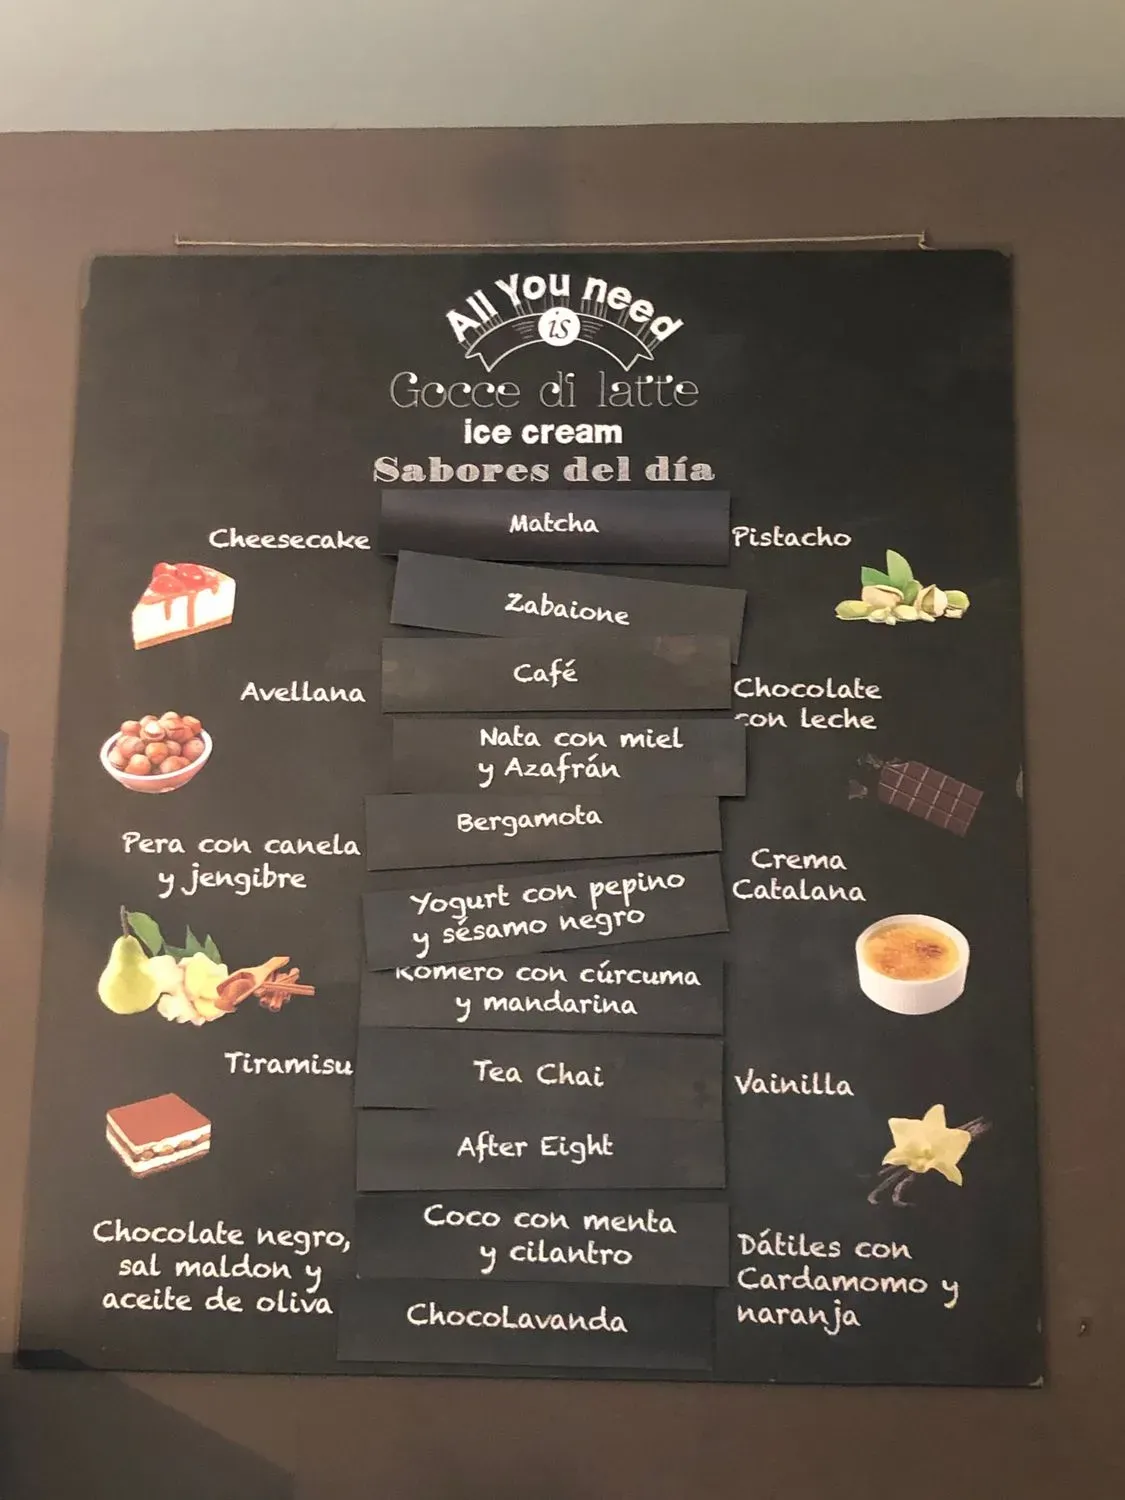 All You need
is
Gocce di latte
ice cream
Sabores del día
Cheesecake
Avellana
Pera con canela
y jengibre
Tiramisu
Chocolate negro,
sal maldon y
aceite de oliva
Matcha
Zabaione
Café
Nata con miel
y Azafrán
Bergamota
Yogurt con pepino
y sésamo negro
Romero con cúrcuma
y mandarina
Tea Chai
After Eight
Coco con menta
y cilantro
ChocoLavanda
Pistacho
Chocolate
con leche
Crema
Catalana
Vainilla
Dátiles con
Cardamomo y
naranja